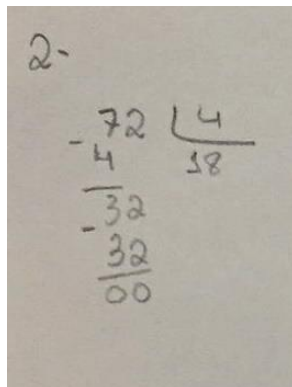 2-
72 4
- 4 18
32
- 32
00